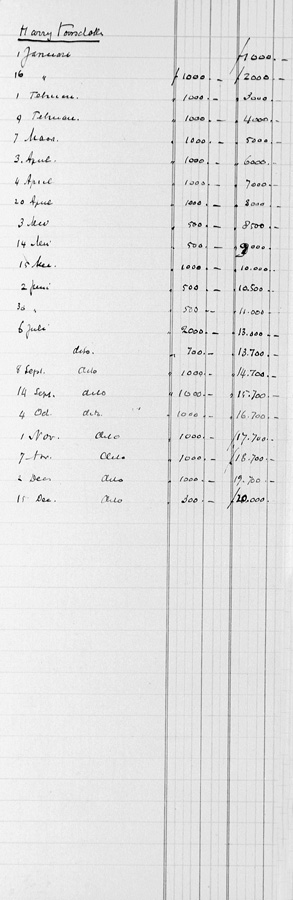 Harry
1 Januari ƒ1000.–
16 " ƒ1000.– ƒ2000.–
1 Februari " 1000.– " 3000.–
9 Februari " 1000.– " 4000.–
7 Maart " 1000.– " 5000.–
3 April " 1000.– " 6000.–
4 April " 1000.– " 7000.–
20 April " 1000.– " 8000.–
3 Mei " 500.– " 8500.–
14 Mei " 500.– " 9000.–
15 Mei " 1000.– " 10.000.–
2 Juni " 500.– " 10.500.–
30 " " 500.– " 11.000.–
6 Juli " 2000.– " 13.000.–
dito. " 700.– " 13.700.–
8 Sept. dito " 1000.– " 14.700.–
14 Sept. dito " 1000.– " 15.700.–
4 Oct. dito " 1000.– " 16.700.–
1 Nov. dito " 1000.– " 17.700.–
7 Nov. dito " 1000.– " 18.700.–
2 Dec. dito " 1000.– 19.700.–
15 Dec. dito " 300.– " 20.000.–